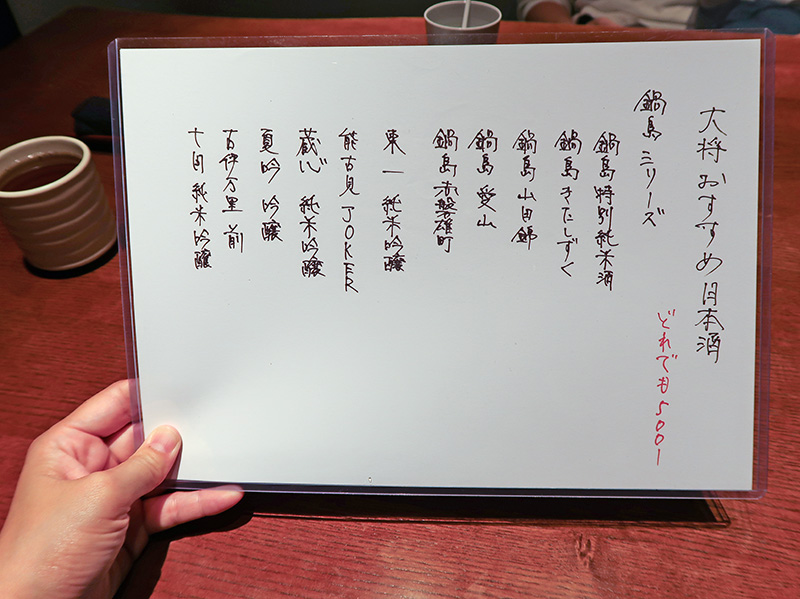 大将おすすめ日本酒
鍋島シリーズ
どれでも500ー
鍋島特別純米酒
鍋島きたしずく
鍋島山田錦
鍋島愛山
鍋島赤磐雄町
東一 純米吟醸
能古見 JOKER
蔵心 純米吟醸
夏吟 吟醸
古伊万里 前
七田 純米吟醸